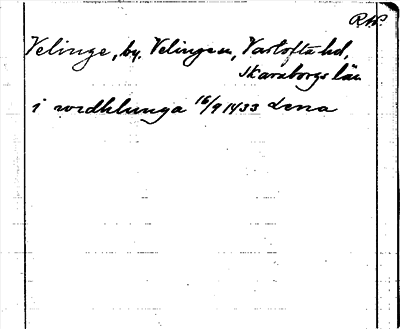 RAP.
Velinge, by, Velinge sn, Vartofta hd,
Skaraborgs län
i wædhlunga 16/9 1433 Lena